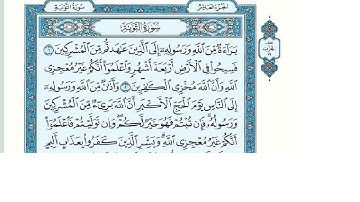 سُورَةُ التَّوْبَةِ
الجُزْءُ العَاشِرُ
سُورَةُ التَّوْبَةِ
بَرَآءَةٌ مِّنَ اللَّهِ وَرَسُولِهِ إِلَى الَّذِينَ عَاهَدتُّم مِّنَ الْمُشْرِكِينَ ١
فَسِيحُوا فِي الْأَرْضِ أَرْبَعَةَ أَشْهُرٍ وَاعْلَمُوا أَنَّكُمْ غَيْرُ مُعْجِزِي
اللَّهِ وَأَنَّ اللَّهَ مُخْزِي الْكَافِرِينَ ٢ وَأَذَانٌ مِّنَ اللَّهِ وَرَسُولِهِ
إِلَى النَّاسِ يَوْمَ الْحَجِّ الْأَكْبَرِ أَنَّ اللَّهَ بَرِيءٌ مِّنَ الْمُشْرِكِينَ
وَرَسُولُهُ فَإِن تُبْتُمْ فَهُوَ خَيْرٌ لَّكُمْ وَإِن تَوَلَّيْتُمْ فَاعْلَمُوا
أَنَّكُمْ غَيْرُ مُعْجِزِي اللَّهِ وَبَشِّرِ الَّذِينَ كَفَرُوا بِعَذَابٍ أَلِيمٍ